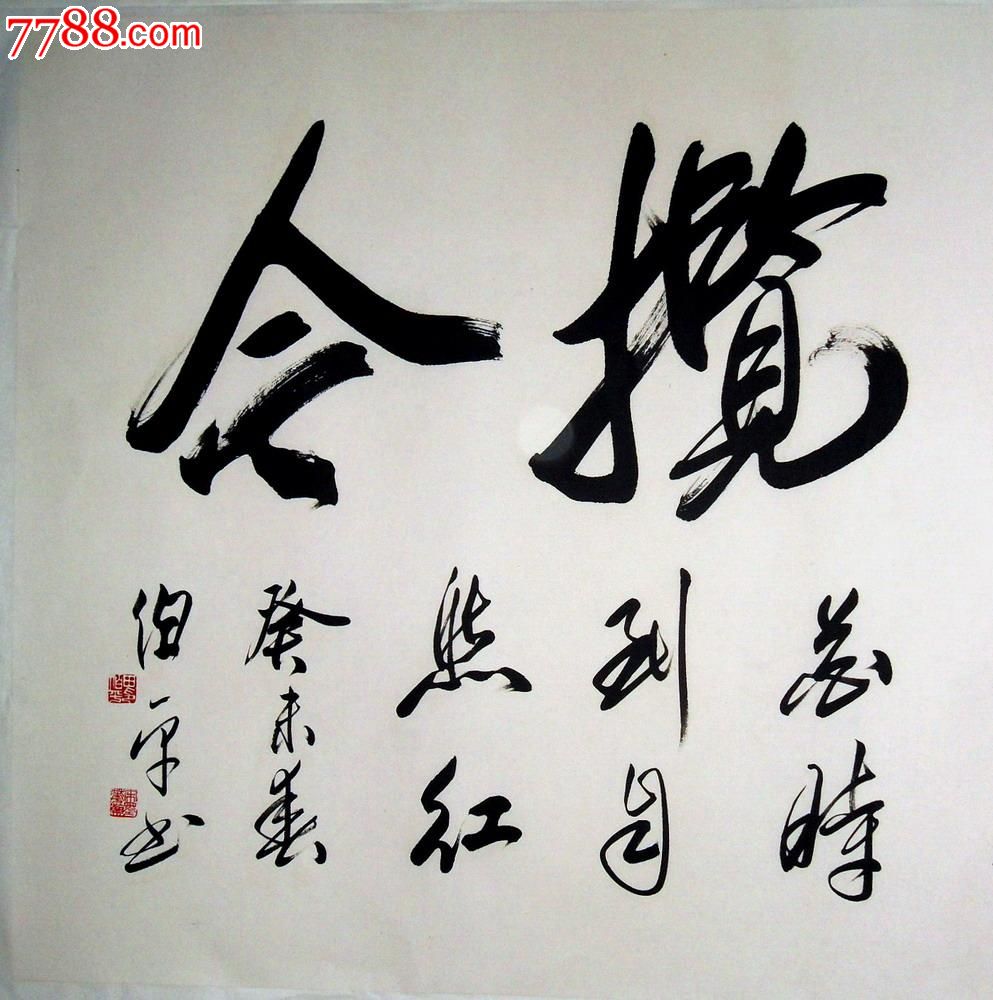 7788.com
攬令
花時
到自
然红
癸未春
伯平书